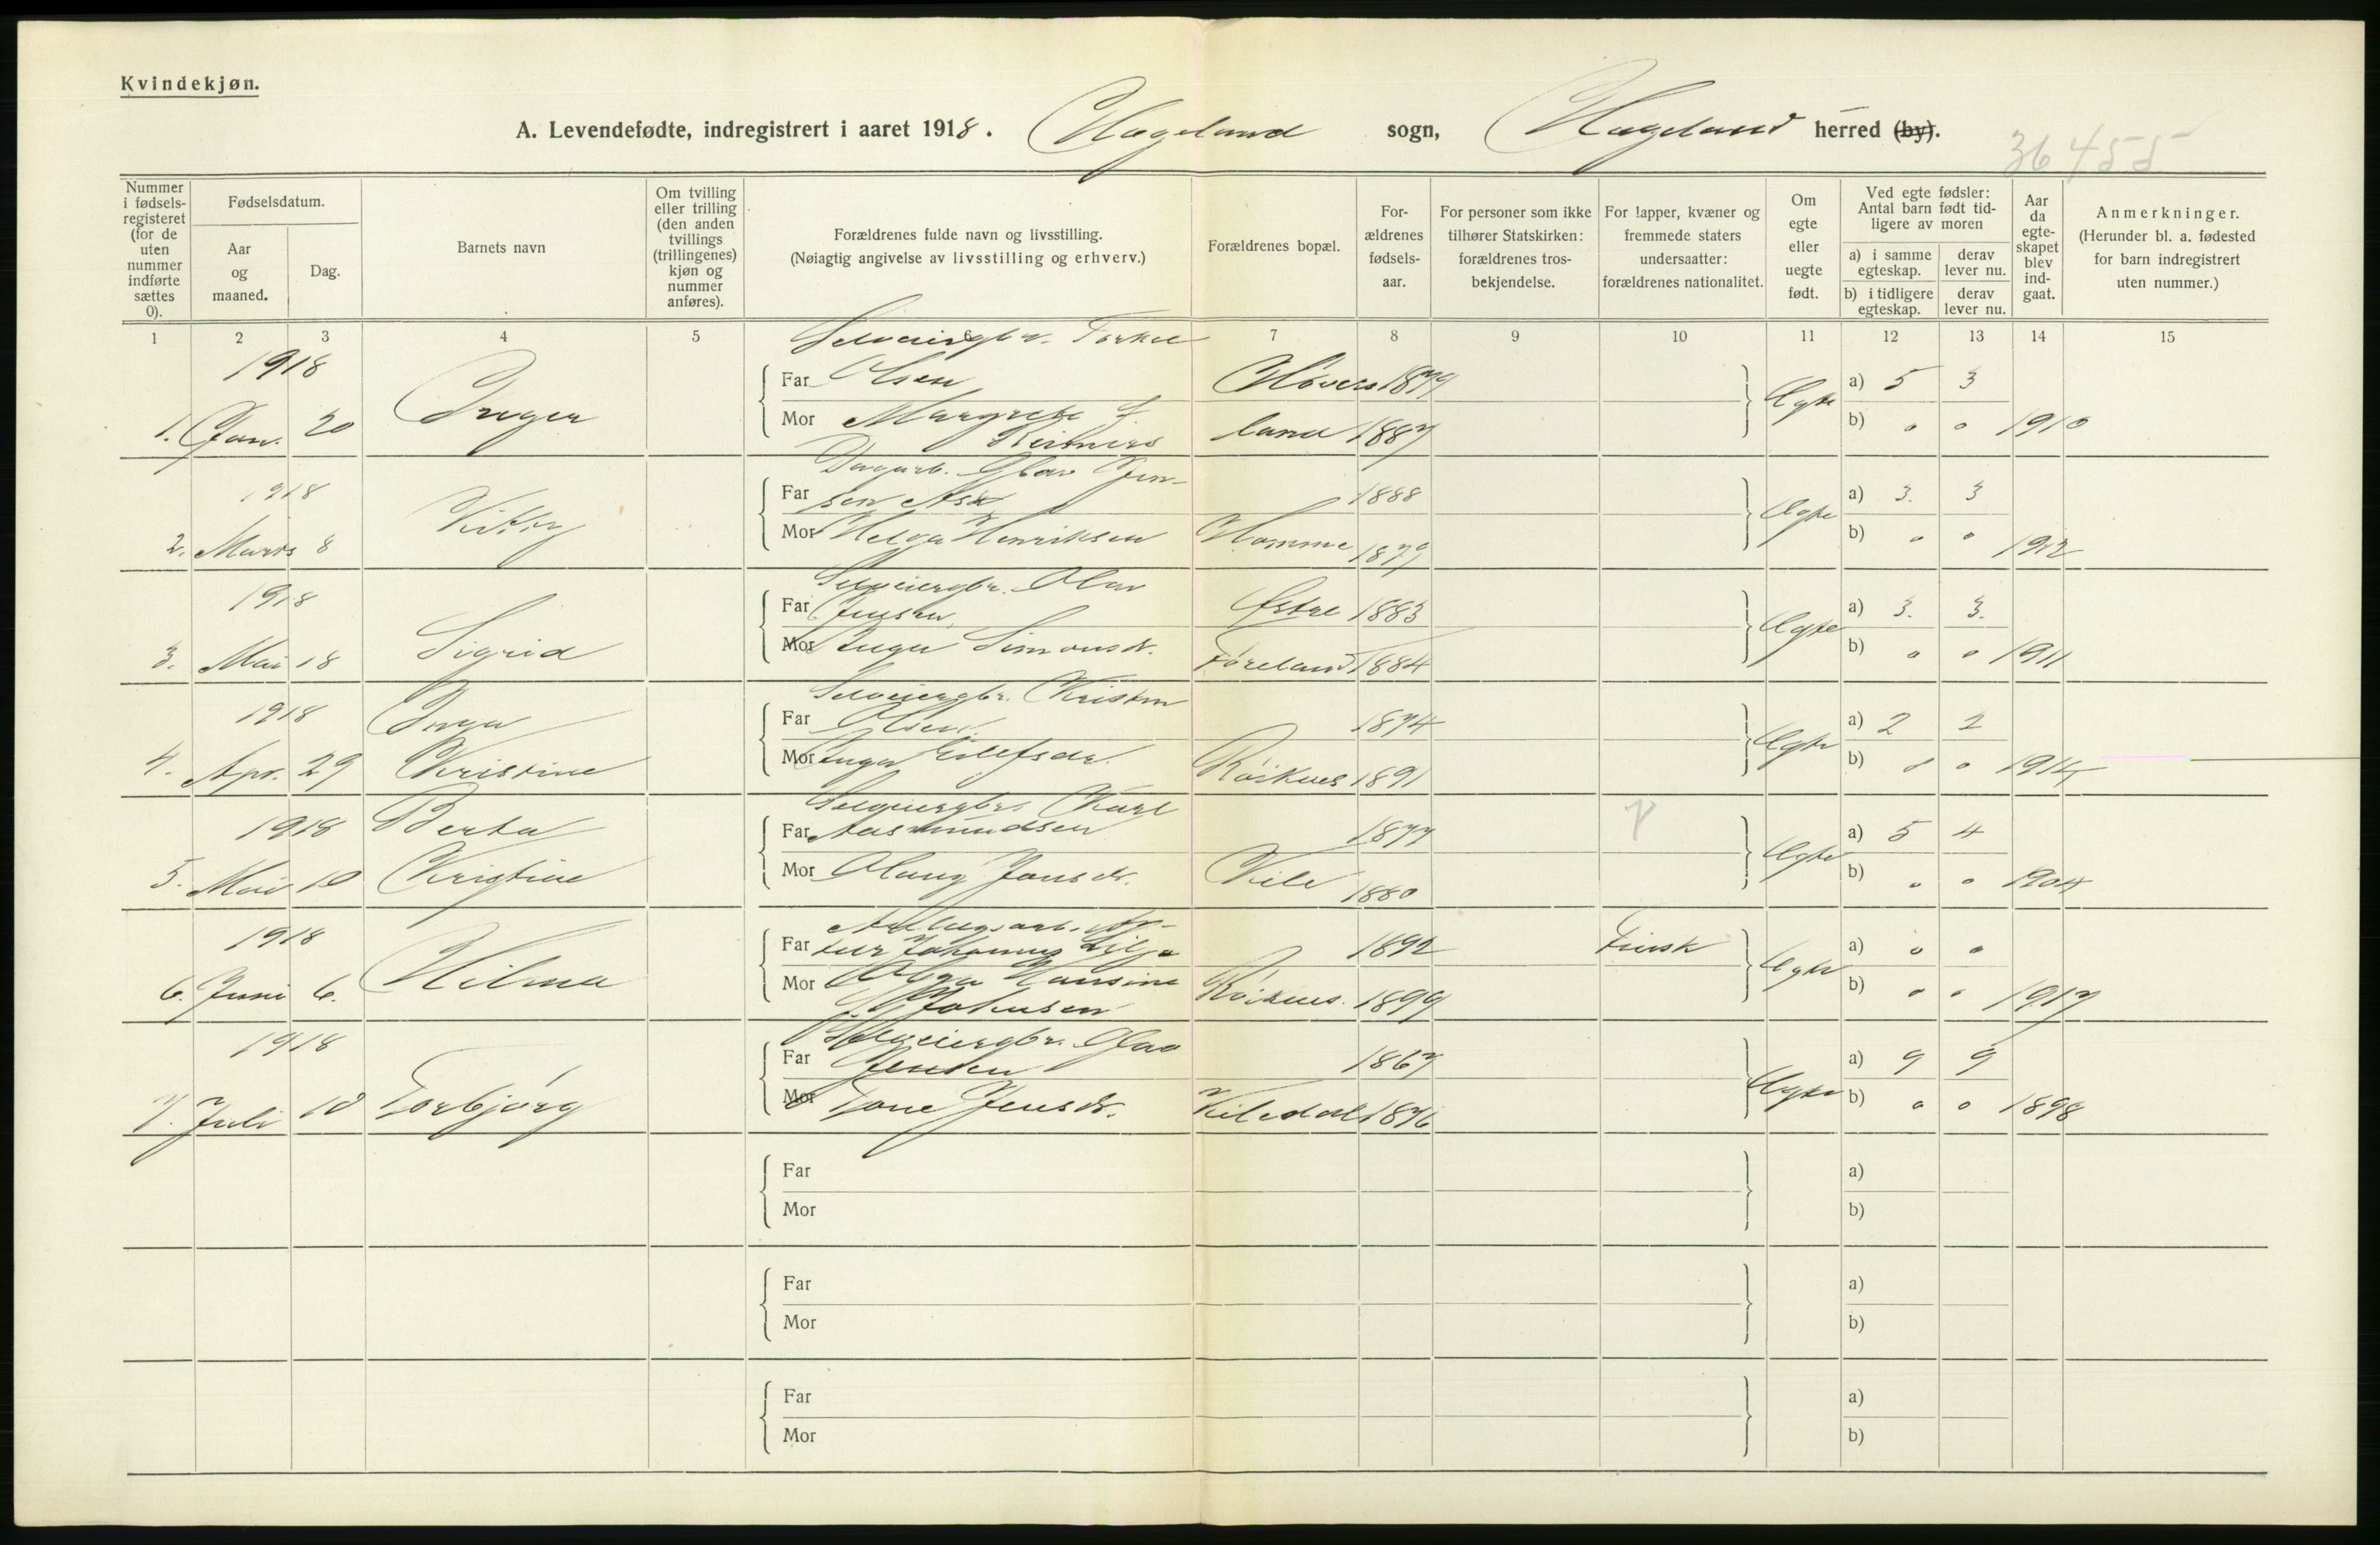 Kvindekjøn.
A. Levendefødte, indregistrert i aaret 1918. Hægeland sogn, Hægeland herred (by).
36 455
Nummer i fødsels-registeret (for de uten nummer indførte sættes 0).
Fødselsdatum.
Aar og maaned.
Dag.
Barnets navn
Om tvilling eller trilling (den anden tvillings (trillingenes) kjøn og nummer anføres).
Forældrenes fulde navn og livsstilling.
(Nøiagtig angivelse av livsstilling og erhverv.)
Forældrenes bopæl.
For-ældrenes fødsels-aar.
For personer som ikke tilhører Statskirken: forældrenes tros-bekjendelse.
For lapper, kvæner og fremmede staters undersaatter: forældrenes nationalitet.
Om egte eller uegte født.
Ved egte fødsler: Antal barn født tid-ligere av moren
a) i samme egteskap.
derav lever nu.
b) i tidligere egteskap.
derav lever nu.
Aar da egte-skapet blev ind-gaat.
Anmerkninger.
(Herunder bl. a. fødested for barn indregistrert uten nummer.)
1 2 3 4 5 6 7 8 9 10 11 12 13 14 15
Selveiergbr. Torkel
1918 Far Olsen Hovers 1879 a) 5 3
1. Jan. 20 Inger Mor Margrethe land 1887 Egte b) 0 0 1910
Dagarb. Olav Jen-
1918 Far sen Ask 1888 a) 3. 3
2. Marts 8 Mor Helga Henriksen Homme 1879 Egte b) 0 0 1912
Selveiergbr. Olav
1918 Far Jensen Østre 1883 a) 3. 3.
3. Mai 18 Sigrid Mor Inga Simonsd. Føreland 1884 Egte b) 0 0 1911
Selveiergbr. Kristen
1918 Inga Far Olsen 1874 a) 2 2
4. Apr. 29 Kristine Mor Inger Eilefsdr. Røiknes 1891 Egte b) 0 0 1914
Selveiergbr. Karl
1918 Berta Far Aasmundsen 1877 a) 5 4
5. Mai 10 Kristine Mor Olaug Jonsdr. Kile 1880 Egte b) 0 0 1904
Anlægsarb.
1918 Far Johannes Lilja 1892 Finsk a) 0 0
6. Juni 6. Hilma Mor Olga Hansine Røiknes. 1899 Egte b) 0 0 1917
Johnsen
Selveiergbr. Olav
1918 Far Jensen 1867 a) 9 9
7. Juli 10 Torbjørg Mor Tone Jensdr. Kiledal 1876 Egte b) 0 0 1898
Far a)
Mor b)
Far a)
Mor b)
Far a)
Mor b)